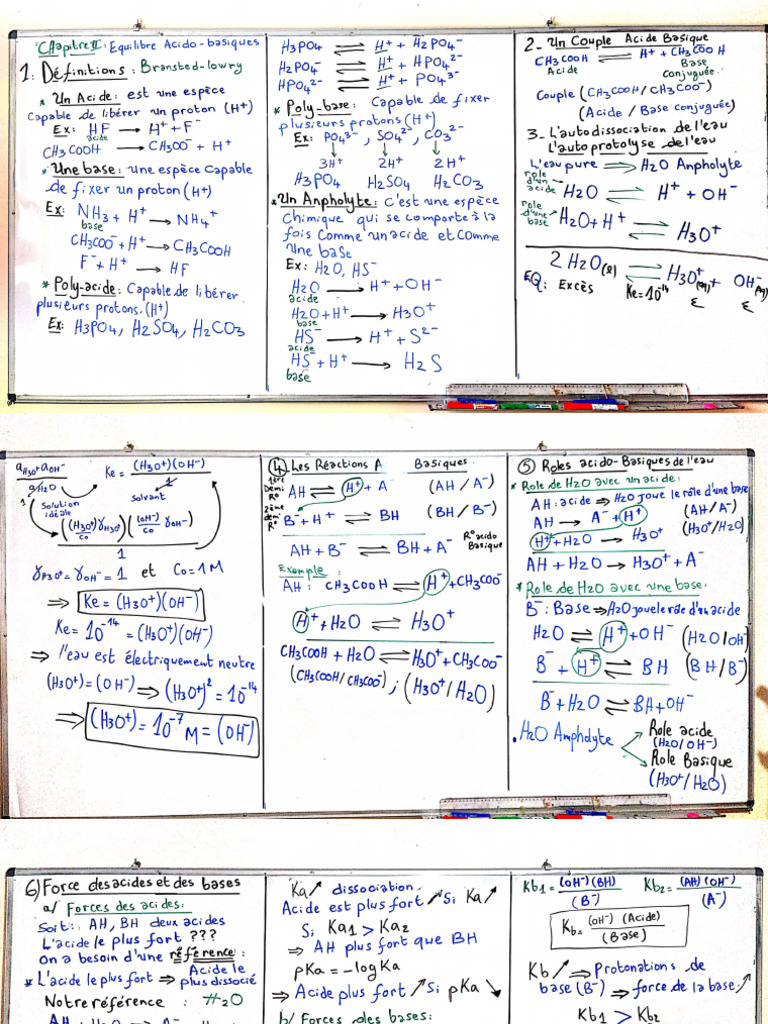 Chapitre II: Equilibre Acido-basiques
1. Définitions : Bronsted-lowry
* Un Acide: est une espèce
Capable de libérer un proton (H⁺)
Ex: HF → H⁺ + F⁻
acide
CH3COOH → CH3COO⁻ + H⁺
* Une base: une espèce capable
de fixer un proton (H⁺)
Ex: NH3 + H⁺ → NH4⁺
base
CH3COO⁻ + H⁺ → CH3COOH
F⁻ + H⁺ → HF
* Poly-acide: Capable de libérer
plusieurs protons. (H⁺)
Ex: H3PO4, H2SO4, H2CO3
H3PO4 ⇌ H⁺ + H2PO4⁻
H2PO4⁻ ⇌ H⁺ + HPO4²⁻
HPO4²⁻ ⇌ H⁺ + PO4³⁻
* Poly-base: Capable de fixer
plusieurs protons (H⁺)
Ex: PO4³⁻, SO4²⁻, CO3²⁻
↓ ↓ ↓
3H⁺ 2H⁺ 2H⁺
H3PO4 H2SO4 H2CO3
* Un Ampholyte: C'est une espèce
chimique qui se comporte à la
fois comme un acide et comme
une base
Ex: H2O, HS⁻
H2O → H⁺ + OH⁻
acide
H2O + H⁺ → H3O⁺
base
HS⁻ → H⁺ + S²⁻
acide
HS⁻ + H⁺ → H2S
base
2- Un Couple Acide Basique
CH3COOH ⇌ H⁺ + CH3COOH
Acide Base
conjuguée.
Couple (CH3COOH / CH3COO⁻)
(Acide / Base conjuguée)
3- L'autodissociation de l'eau
L'autoprotolyse de l'eau
L'eau pure ⇒ H2O Ampholyte
role d'un acide H2O ⇌ H⁺ + OH⁻
role d'une base H2O + H⁺ ⇌ H3O⁺
2 H2O(l) ⇌ H3O⁺(aq) + OH⁻(aq)
EQ: Excès Ke=10⁻¹⁴ ε ε
aH3O⁺ aOH⁻ Ke = (H3O⁺)(OH⁻)
aH2O 1
1 Solution idéale solvant
((H3O⁺)/C0 γH3O⁺)((OH⁻)/C0 γOH⁻)
1
γH3O⁺ = γOH⁻ = 1 et C0 = 1M
⇒ Ke = (H3O⁺)(OH⁻)
Ke = 10⁻¹⁴ = (H3O⁺)(OH⁻)
⇒ l'eau est électriquement neutre
(H3O⁺) = (OH⁻) ⇒ (H3O⁺)² = 10⁻¹⁴
⇒ (H3O⁺) = 10⁻⁷ M = (OH⁻)
④ Les Réactions A Basiques
1ère Demi R° AH ⇌ H⁺ + A⁻ (AH / A⁻)
2ème demi R° B⁻ + H⁺ ⇌ BH (BH / B⁻)
AH + B⁻ ⇌ BH + A⁻ R° acido Basique
Exemple :
AH : CH3COOH ⇌ H⁺ + CH3COO⁻
H⁺ + H2O ⇌ H3O⁺
CH3COOH + H2O ⇌ H3O⁺ + CH3COO⁻
(CH3COOH / CH3COO⁻) ; (H3O⁺ / H2O)
⑤ Roles acido-Basiques de l'eau
* Role de H2O avec un acide:
AH : acide ⇒ H2O joue le rôle d'une base
AH → A⁻ + H⁺ (AH / A⁻)
H⁺ + H2O → H3O⁺ (H3O⁺/H2O)
AH + H2O → H3O⁺ + A⁻
* Role de H2O avec une base.
B⁻ : Base ⇒ H2O joue le role d'un acide
H2O ⇌ H⁺ + OH⁻ (H2O/OH⁻)
B⁻ + H⁺ ⇌ BH (BH/B⁻)
B⁻ + H2O ⇌ BH + OH⁻
. H2O Ampholyte Role acide
(H2O/OH⁻)
Role Basique
(H3O⁺/H2O)
6) Force des acides et des bases
a/ Forces des acides:
Soit: AH, BH deux acides
L'acide le plus fort ???
On a besoin d'une référence :
* L'acide le plus fort ⇒ Acide le plus dissocié
Notre référence : H2O
Ka ↗ dissociation
Acide est plus fort ↗ Si Ka ↗
Si Ka1 > Ka2
⇒ AH plus fort que BH
pKa = -log Ka
⇒ Acide plus fort ↗ Si pKa ↘
b/ Forces des bases:
Kb1 = (OH⁻)(BH)/(B⁻) Kb2 = (AH)(OH⁻)/(A⁻)
Kb = (OH⁻)(Acide)/(Base)
Kb ↗ ⇒ Protonations de
base (B⁻) ⇒ force de la base ↗
Kb1 > Kb2